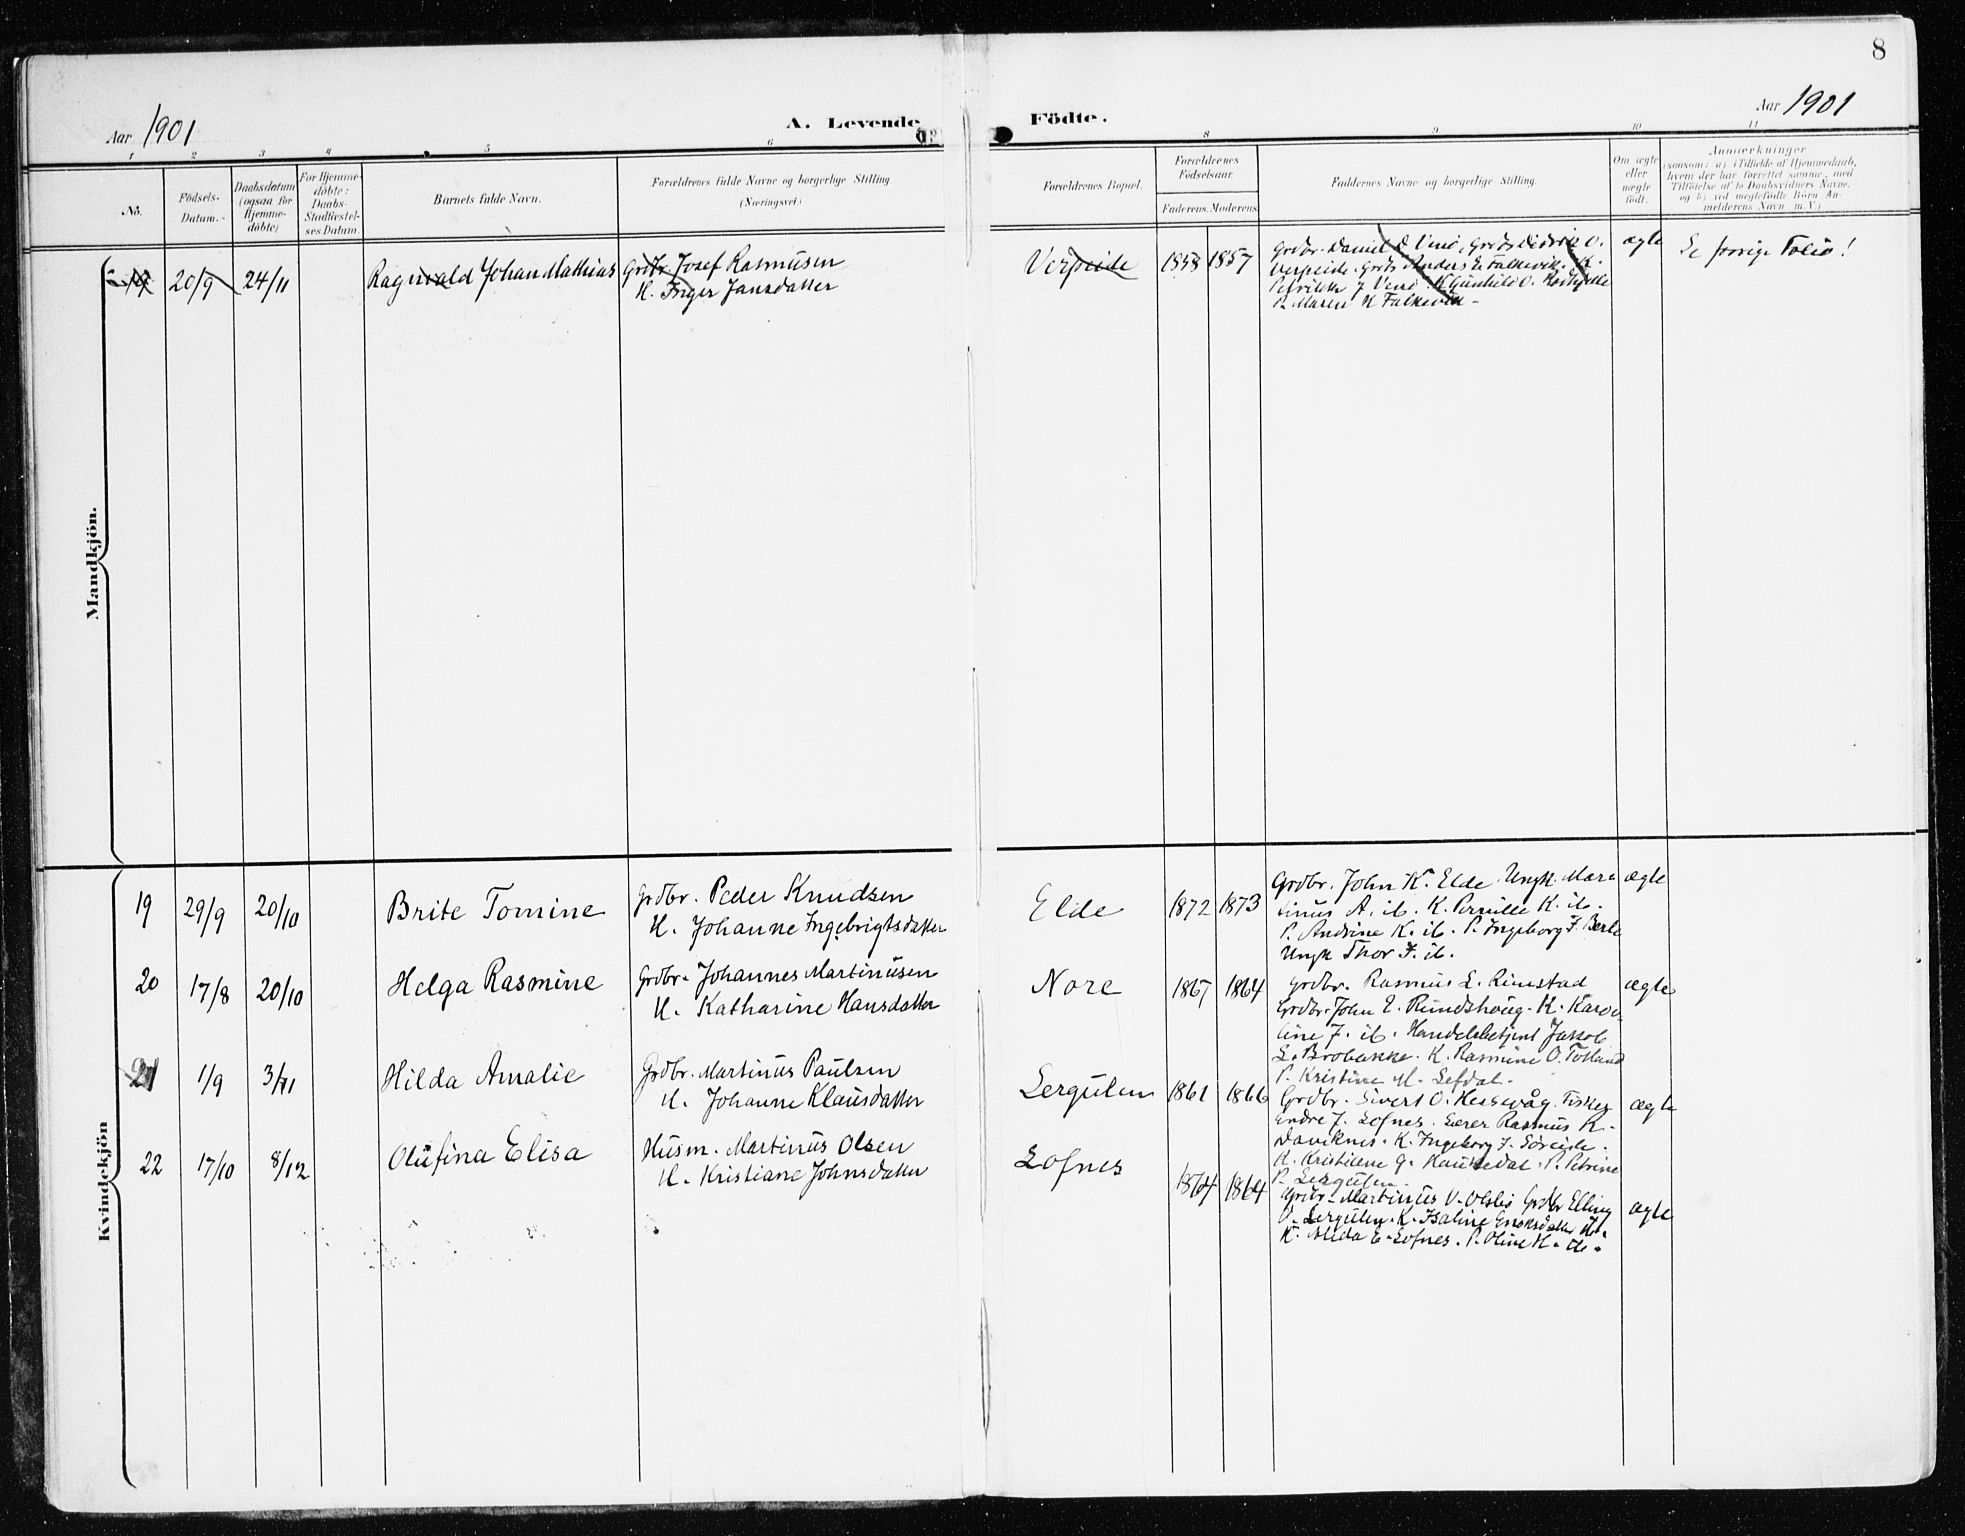 8
Aar 1901
A. Levende
Födte.
Aar 1901
1 2 3 4 5 6 8 9 10 11
Nö.
Födsels-
Datum.
Daabsdatum
(ogsaa for
Hjemme-
döbte)
For Hjemme-
döbte:
Daabs-
Stadfæstel-
ses Datum.
Barnets fulde Navn.
Forældrenes fulde Navne og borgerlige Stilling
(Næringsvei)
Forældrenes Bopæl.
Forældrenes
Födselsaar.
Faderens. Moderens.
Faddernes Navne og borgerlige Stilling.
Om ægte
eller
uægte
födt.
Anmærkninger
(saasom: a) i Tilfælde af Hjemmedaab,
hvem der har forrettet samme, med
Tilföielse af to Daabsvidners Navne.
og b) ved uægtefödte Börn An-
melderens Navn m. V.)
Mandkjön.
20/9 24/11 Ragnvald Johan Mathias Grdbr Josef Rasmusen
H. Inger Jansdatter
Verpeide 1853 1857
Grdbr. Daniel D. Didrik O.
Verpeide. Grdb. Anders E. Falkevik. K.
K. Gunhild O.
P. Maren H Falkevik -
ægte
Se forrige Folio!
Kvindekjön
19 29/9 20/10 Brite Tomine Grdbr. Peder Knudsen
H. Johanne Ingebrigtsdatter
Elde 1872 1873
Grdbr. John K. Elde. Ungk. Mar-
tinus A. ib. K. Pernille K. ib.
P. Andrine K. ib. P. Ingeborg J. Berle
Ungk Thor J. ib.
ægte
20 17/8 20/10 Helga Rasmine Grdbr. Johannes Martinusen
H. Katharine Hansdatter
Nore 1867 1864
Grdbr. Rasmus L. Rimstad
Grdbr. John E. Rundshaug. K. Karo-
line J. ib. Handelsbetjent Jakob
L. Brobakke. K. Rasmine O. Totland
P. Kristine M. Sefdal.
ægte
21 1/9 3/11 Hilda Amalie Grdbr. Martinus Paulsen
H. Johanne Klausdatter
Lergulen 1861 1866
Grdbr. Sivert O. Hessevåg. Fisker
Endre J. Lofnes. Lærer Rasmus K.
Daviknes. K. Ingeborg J. Søreide.
K. Kristiene G. Haukedal. P. Petrine
P. Lergulen.
ægte
22 17/10 8/12 Olufina Elisa Husm. Martinus Olsen
H. Kristiane Johnsdatter
Lofnes 1864 1864
Grdbr. Martinus V. Grdbr Elling
O. Lergulen. K. Isaline Enoksdatter ib.
K. Alida E. Lofnes. P. Oline H. ib.
ægte